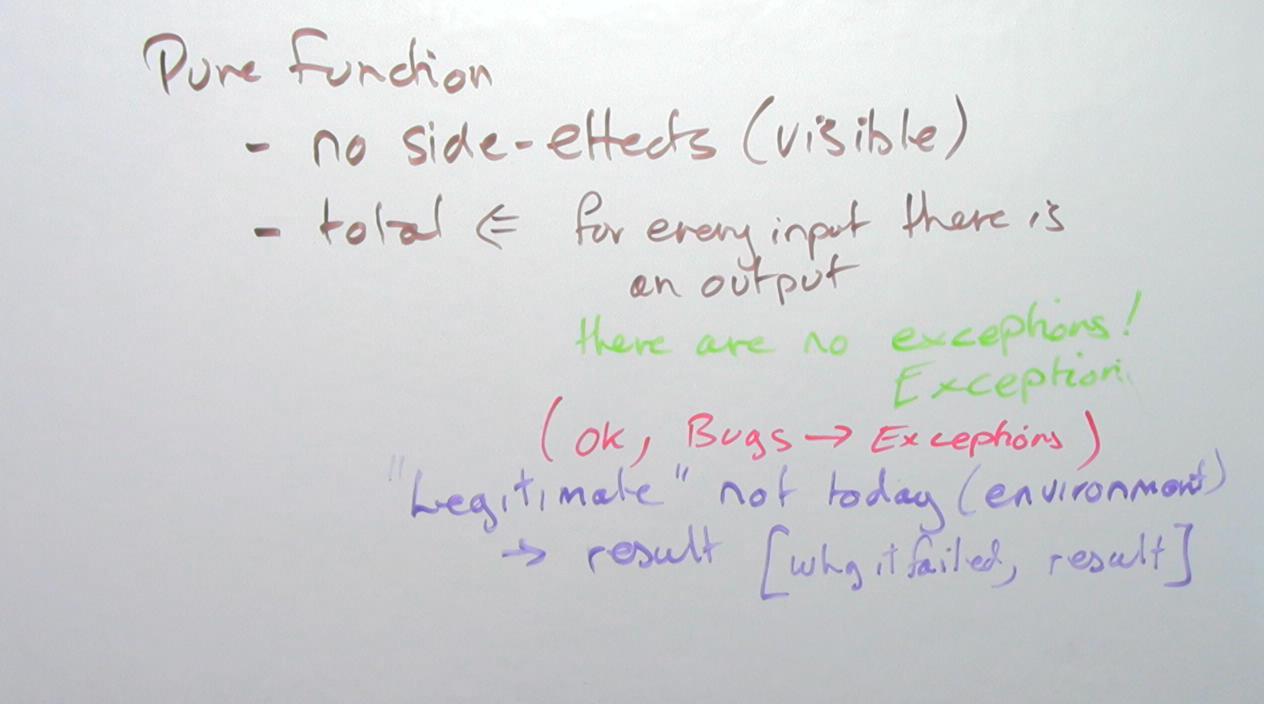 Pure Function
- no side-effects (visible)
- total ⇐ for every input there is
an output
there are no exceptions!
Exception
(OK, Bugs → Exceptions)
"Legitimate" not today (environment)
→ result [why it failed, result]